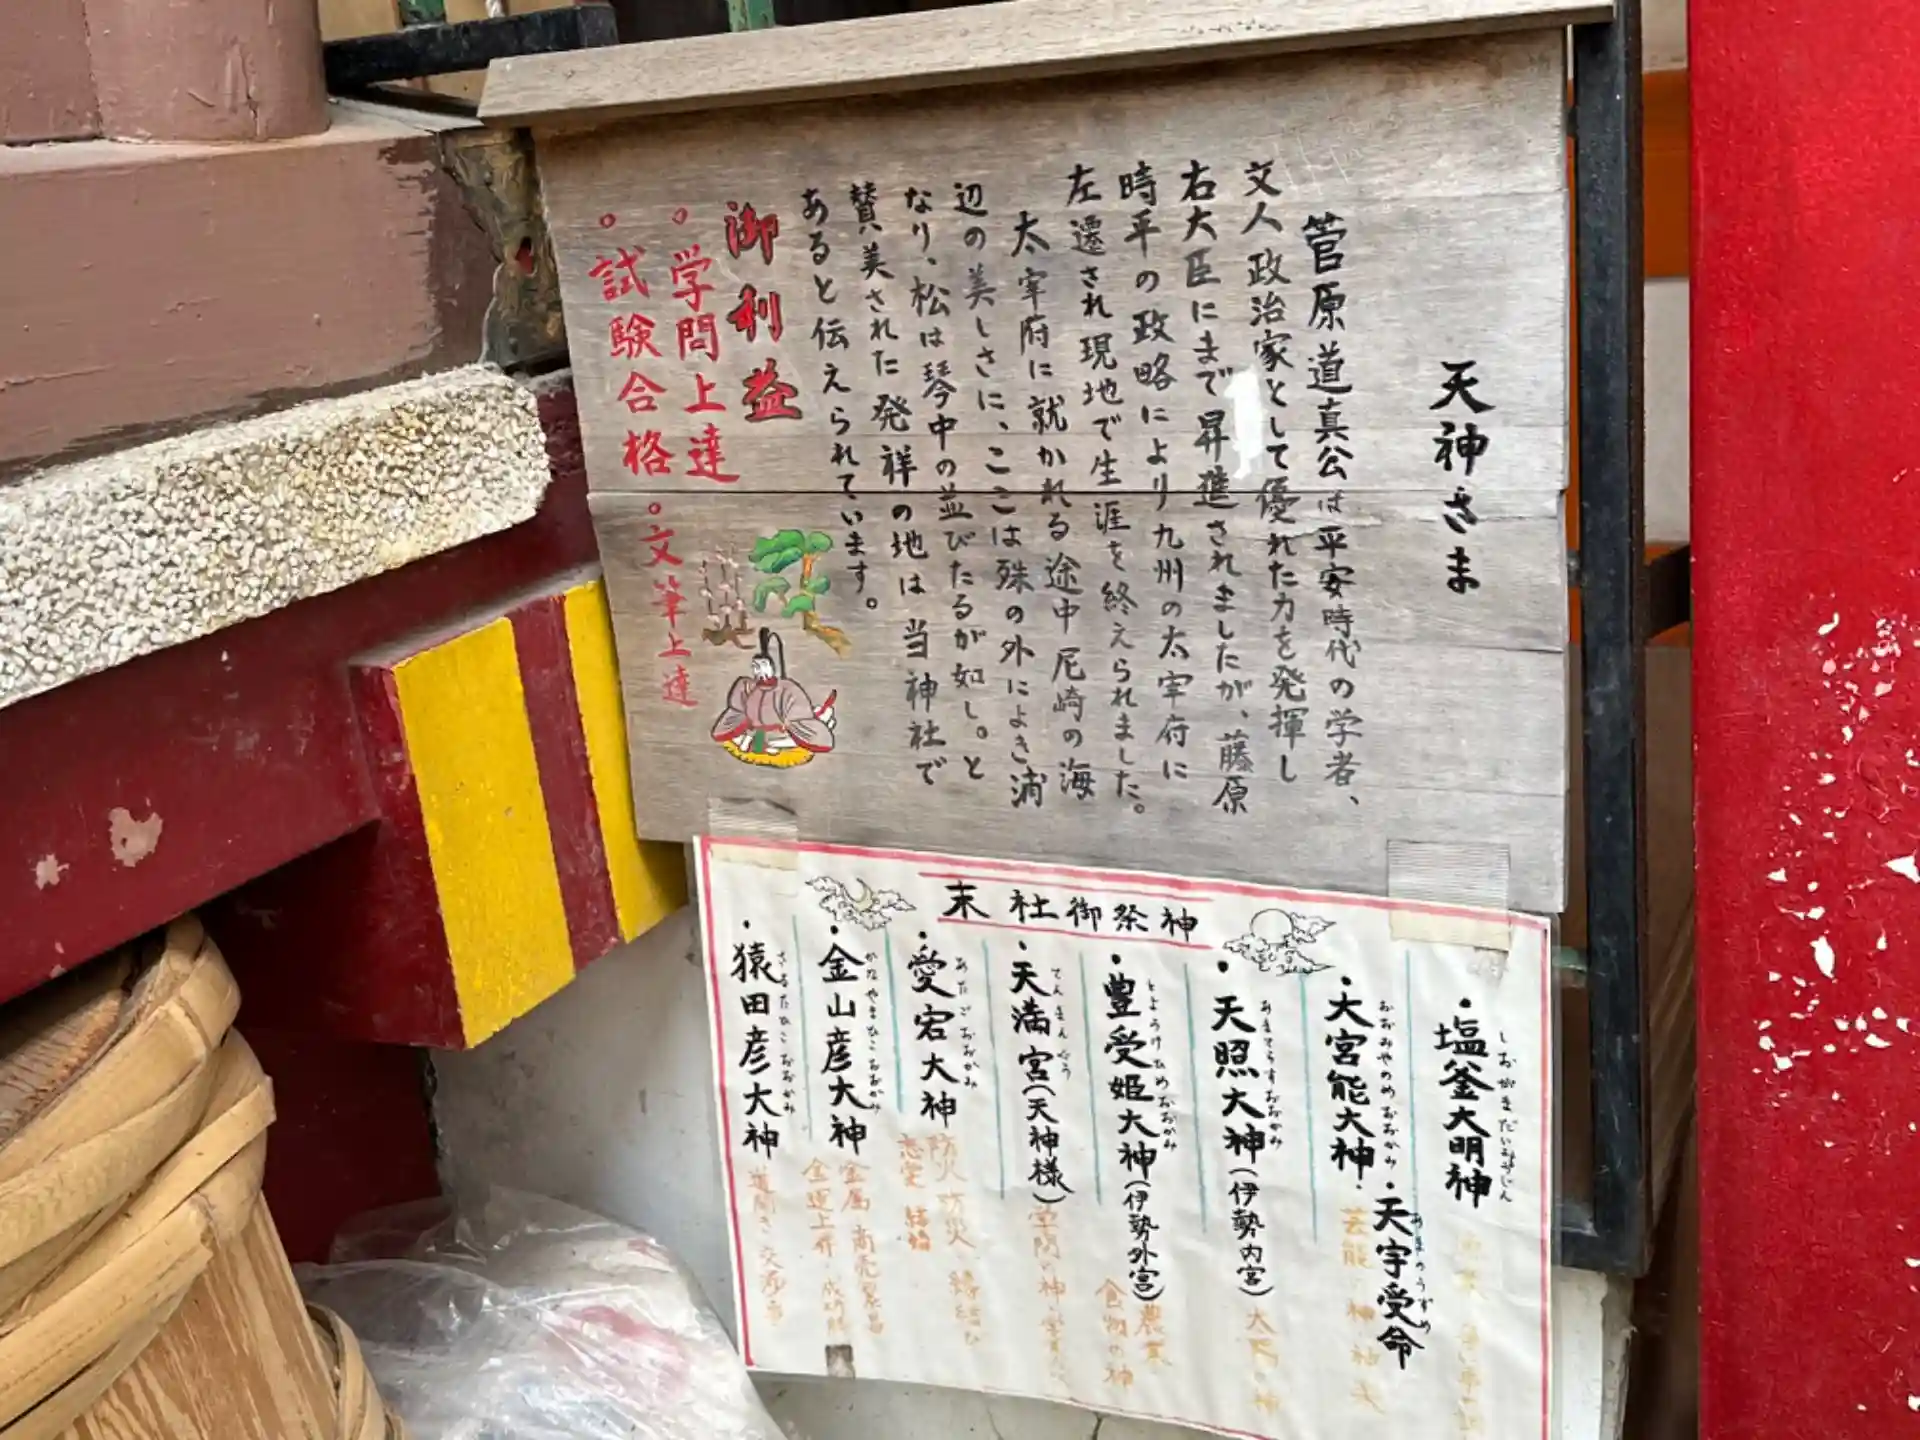 天神さま
菅原道真公は平安時代の学者、
文人政治家として優れた力を発揮し
右大臣にまで昇進されましたが、藤原
時平の政略により九州の太宰府に
左遷され現地で生涯を終えられました。
太宰府に就かれる途中尼崎の海
辺の美しさに、ここは殊の外によき浦
なり、松は琴中の並びたるが如し。と
賛美された発祥の地は当神社で
あると伝えられています。
御利益
。学問上達
。試験合格 。文筆上達
末社御祭神
・塩釜大明神
しおがまだいみょうじん
・大宮能大神
おおみやのめおおかみ
・天宇受命
あまのうずめ
芸能
・天照大神(伊勢内宮)
あまてらすおおかみ
・豊受姫大神(伊勢外宮)
とようけひめおおかみ
農業
食物の神
・天満宮(天神様)
てんまんぐう
・愛宕大神
あたごおおかみ
防火 防災 縁結び
・金山彦大神
かなやまひこおおかみ
金属 商売繁昌
金運上昇
・猿田彦大神
さるたひこおおかみ
道開き